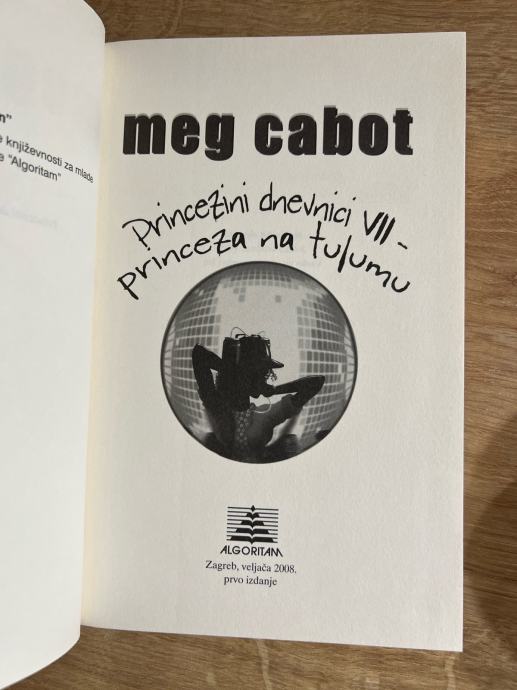 n"
e književnosti za mlade
e "Algoritam"
meg cabot
Princezini dnevnici VII –
princeza na tulumu
ALGORITAM
Zagreb, veljača 2008.
prvo izdanje